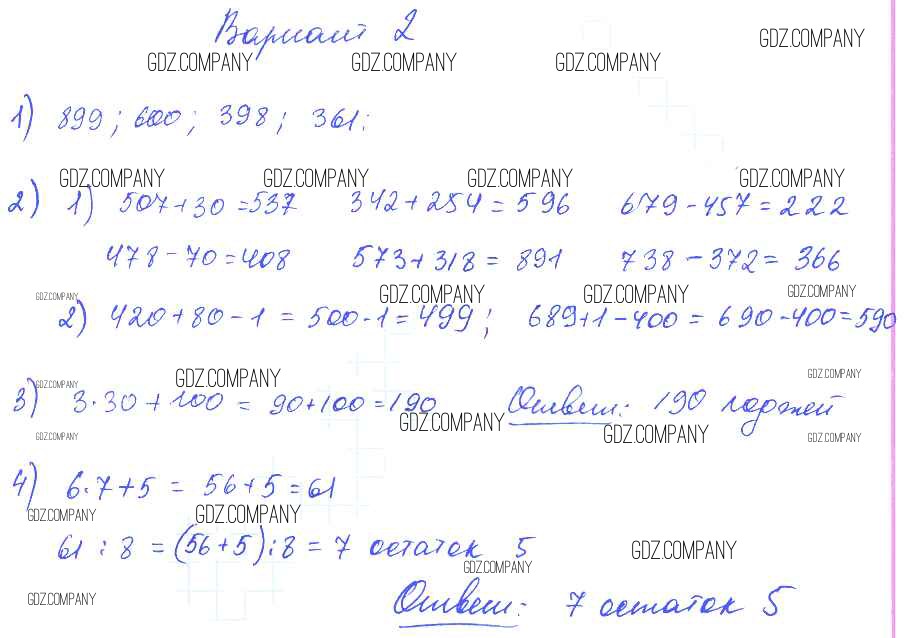 Вариант 2
GDZ.COMPANY GDZ.COMPANY GDZ.COMPANY GDZ.COMPANY
1) 899; 600; 398; 361:
GDZ.COMPANY GDZ.COMPANY GDZ.COMPANY GDZ.COMPANY
2) 1) 507+30=537 342+254=596 679-457=222
478-70=408 573+318=891 738-372=366
GDZ.COMPANY GDZ.COMPANY GDZ.COMPANY GDZ.COMPANY
2) 420+80-1=500-1=499; 689+1-400=690-400=590
GDZ.COMPANY GDZ.COMPANY GDZ.COMPANY
3) 3·30+100=90+100=190 Ответ: 190 лоджей
GDZ.COMPANY GDZ.COMPANY GDZ.COMPANY GDZ.COMPANY
4) 6·7+5=56+5=61
GDZ.COMPANY GDZ.COMPANY
61:8=(56+5):8=7 остаток 5
GDZ.COMPANY GDZ.COMPANY
GDZ.COMPANY
Ответ: 7 остаток 5